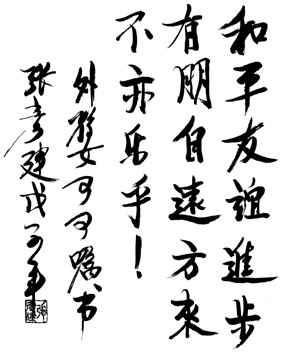 和平友誼進步
有朋自遠方來
不亦乐乎！
外孫女可可嘱书
張建戊子年